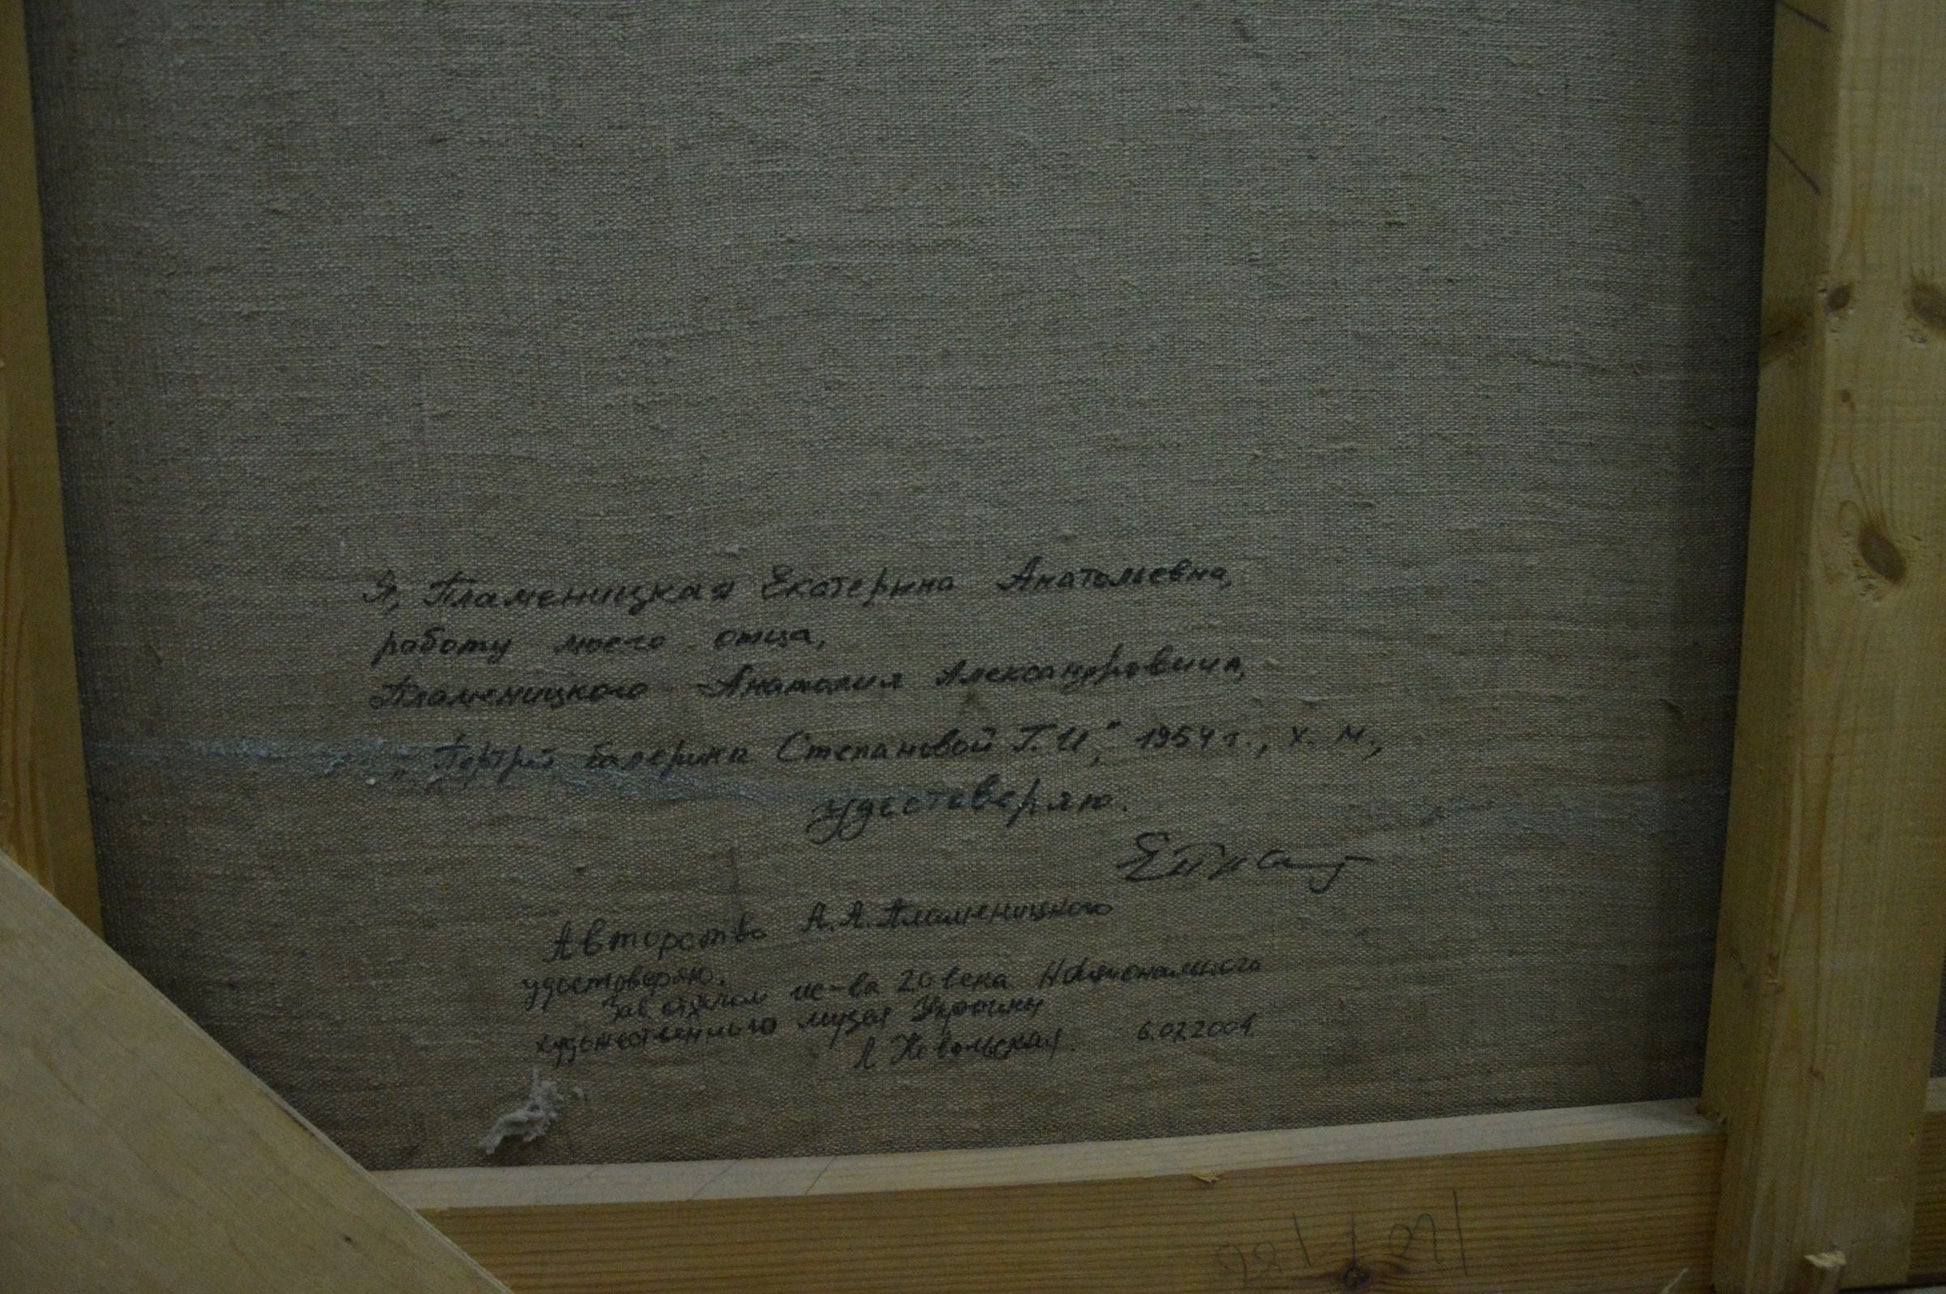 Я, Пламеницкая Екатерина Анатольевна,
работу моего отца,
Пламеницкого Анатолия Александровича,
„Портрет балерины Степановой Т. И.", 1954 г., х. м.,
удостоверяю.
Авторство А. А. Пламеницкого
удостоверяю.
Зав. отделом ис-ва 20 века Национального
художественного музея Украины
Л. 6.02.2004.